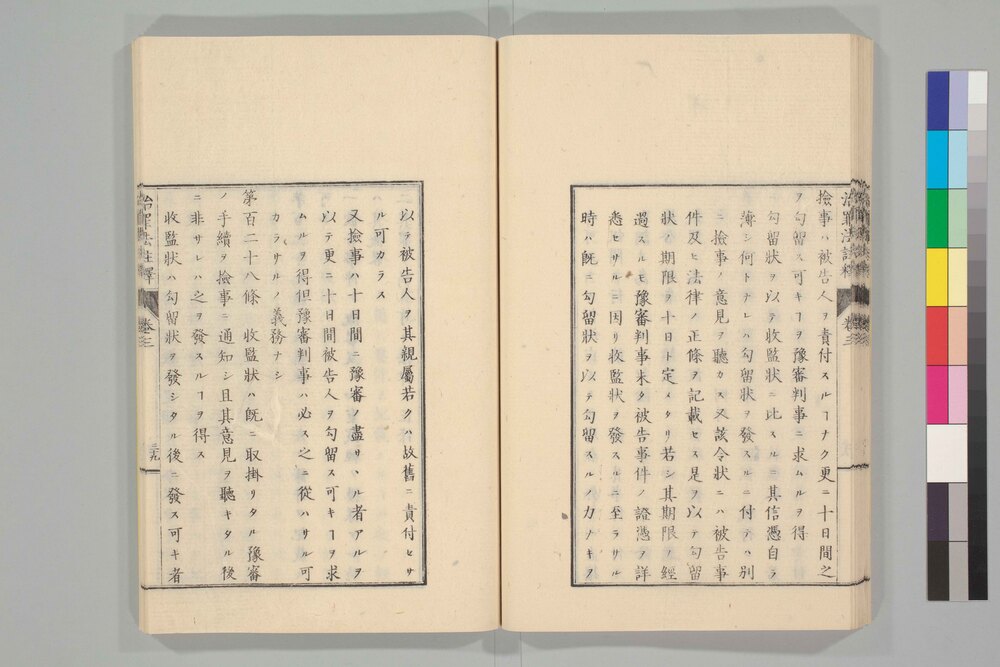 檢事ハ被告人ヲ責付スルヿナク更ニ十日間之
ヲ勾留ス可キヿヲ豫審判事ニ求ムルヲ得
勾留狀ヲ以テ收監狀ニ比スルニ其信憑自ラ
薄シ何トナレハ勾留狀ヲ發スルニ付テハ別
ニ檢事ノ意見ヲ聽カス又該令狀ニハ被告事
件及ヒ法律ノ正條ヲ記載セス是ヲ以テ勾留
狀ノ期限ヲ十日ト定メタリ若シ其期限ノ經
過スルモ豫審判事未タ被告事件ノ證憑ヲ詳
悉セサルニ因リ收監狀ヲ發スルニ至ラサル
時ハ旣ニ勾留狀ヲ以テ勾留スルノ力ナキヲ
以テ被告人ヲ其親屬若クハ故舊ニ責付セサ
ル可カラス
又檢事ハ十日間ニ豫審ノ盡サヽル者アルヲ
以テ更ニ十日間被告人ヲ勾留ス可キヿヲ求
ムルヲ得但豫審判事ハ必ス之ニ從ハサル可
カラサルノ義務ナシ
第百二十八條 收監狀ハ旣ニ取掛リタル豫審
ノ手續ヲ檢事ニ通知シ且其意見ヲ聽キタル後
ニ非サレハ之ヲ發スルヿヲ得ス
收監狀ハ勾留狀ヲ發シタル後ニ發ス可キ者
治罪法註釋 卷三 二十九